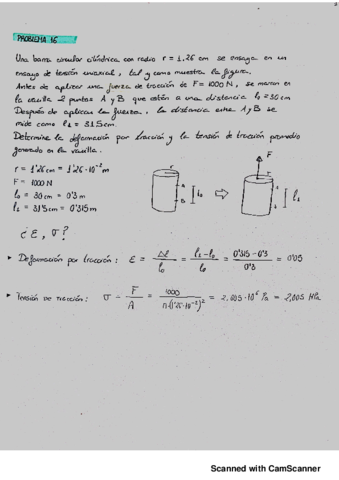 PROBLEMA 16
Una barra circular cilíndrica con radio r = 1,26 cm se ensaya en un
ensayo de tensión uniaxial, tal y como muestra la figura.
Antes de aplicar una fuerza de tracción de F = 1000 N, se marcan en
la varilla 2 puntos A y B que están a una distancia l₀ = 30 cm
Después de aplicar la fuerza, la distancia entre A y B se
mide como l₁ = 31'5 cm.
Determine la deformación por tracción y la tensión de tracción promedio
generado en la varilla.
r = 1'26 cm = 1'26 · 10⁻² m
F = 1000 N
l₀ = 30 cm = 0'3 m
l₁ = 31'5 cm = 0'315 m
r
A
B
l₀
F
l₁
¿ε, σ?
▸ Deformación por tracción: ε = Δl / l₀ = (l₁ - l₀) / l₀ = (0'315 - 0'3) / 0'3 = 0'05
▸ Tensión de tracción: σ = F / A = 1000 / π(1'26·10⁻²)² = 2,005·10⁶ Pa = 2,005 MPa
Scanned with CamScanner